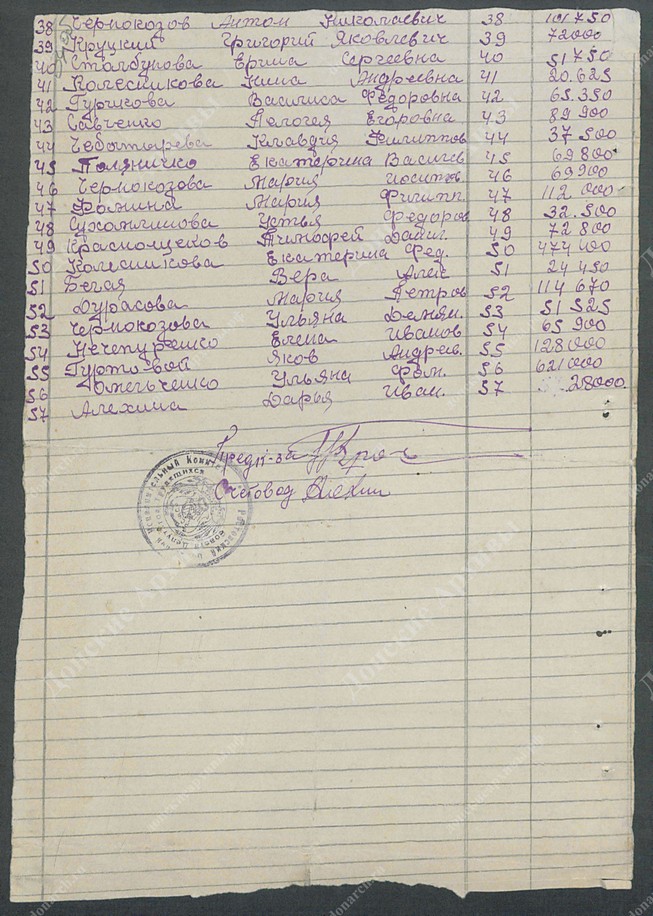 38 Чернокозов Антон Николаевич 38 101750
39 Круцкий Григорий Яковлевич 39 72000
40 Столбунова Ерина Сергеевна 40 51750
41 Колесникова Нина Андреевна 41 20.625
42 Гурикова Василиса Федоровна 42 65.350
43 Савченко Пелогея Егоровна 43 89 900
44 Чеботарева Клавдия Филиппов 44 37.500
45 Поляничко Екатерина Василев 45 69800
46 Чернокозова Мария Иосипов. 46 69900
47 Фомина Мария Филипп. 47 112 000
48 Сухомлинова Устья Федоров 48 32.500
49 Краснощеков Тимофей Данил. 49 72 800
50 Колесникова Екатерина Фед. 50 474 400
51 Белая Вера Алек 51 24 450
52 Дурасова Мария Петров 52 114 670
53 Чернокозова Ульяна Демян. 53 51 525
54 Нечепуренко Елена Иванов 54 65 900
55 Гуртовой Яков Андреев. 55 128000
56 Омельченко Ульяна Фом. 56 621000
57 Алехина Дарья Иван. 57 28000
Предс-за
Счетовод Алехин
Исполнительный Комитет
Ростовский
Донские Архивы
donarch.ru